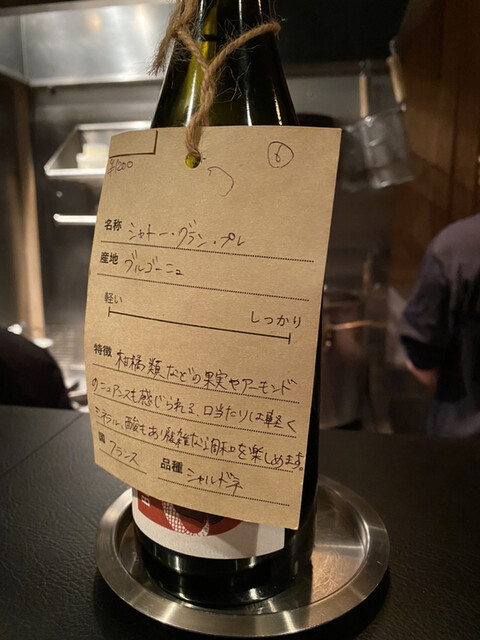 ¥1200
⑥
名称 シャトー・グラン・プレ
産地 ブルゴーニュ
軽い しっかり
特徴 柑橘類などの果実やアーモンド
のニュアンスも感じられる、口当たりは軽く
ミネラル、酸もあり複雑な調和を楽しめます。
国 フランス 品種 シャルドネ